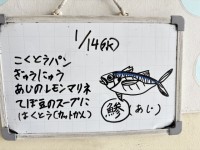 1/14(木)
こくとうパン
ぎゅうにゅう
あじのレモンマリネ
てぼ豆のスープに
はくとう(カットかん)
鯵(あじ)